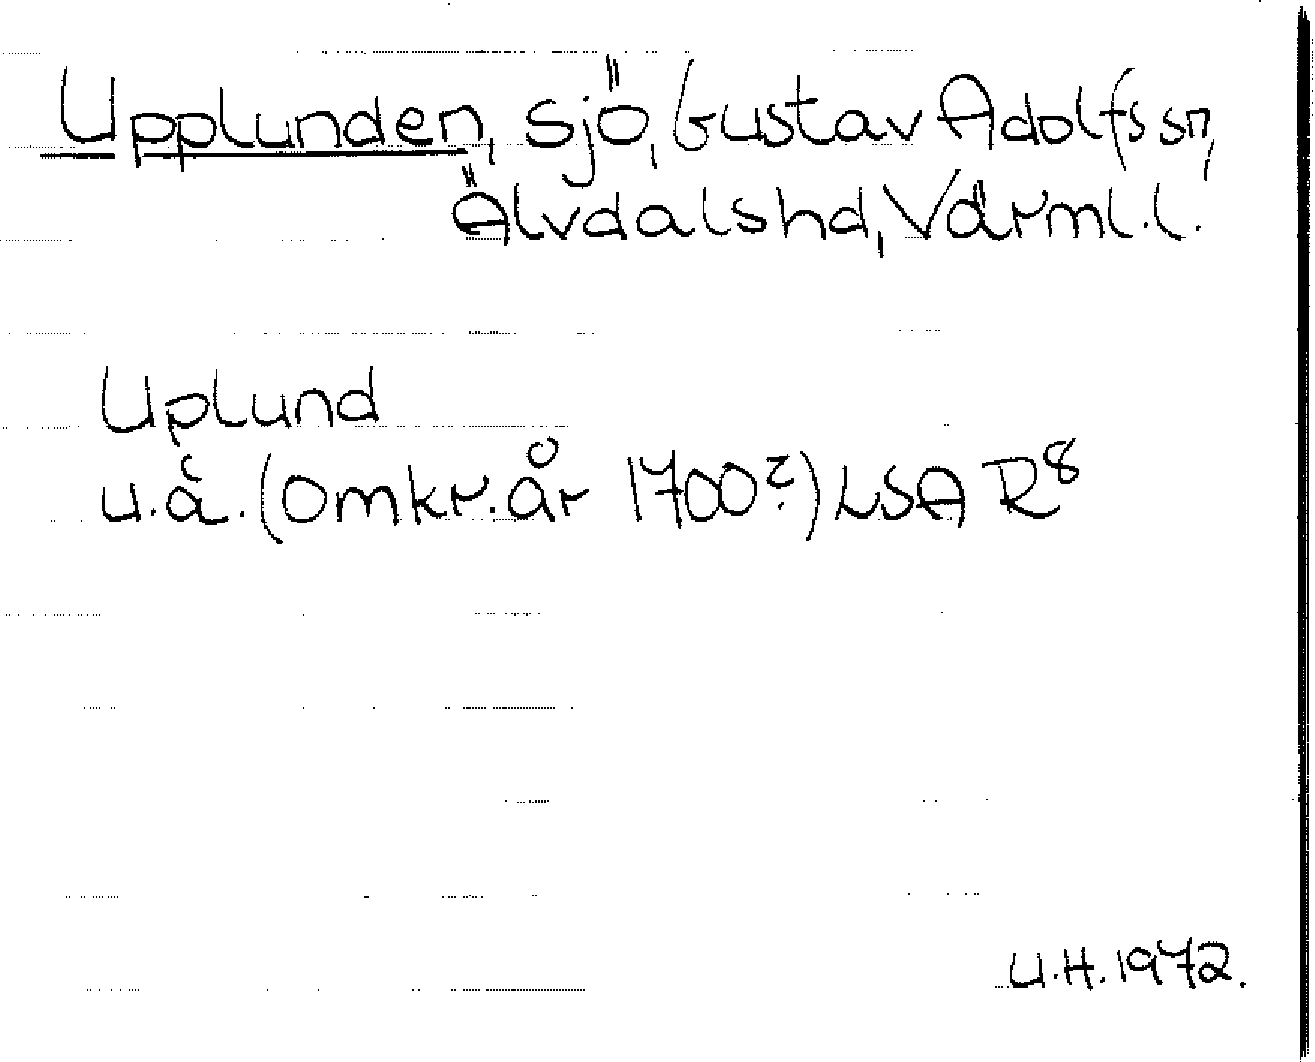 Upplunden, sjö, Gustav Adolfs sn,
Älvdalshd, Värml. l.
Uplund
u.å. (omkr. år 1700?) LSA R8
U.H. 1972.